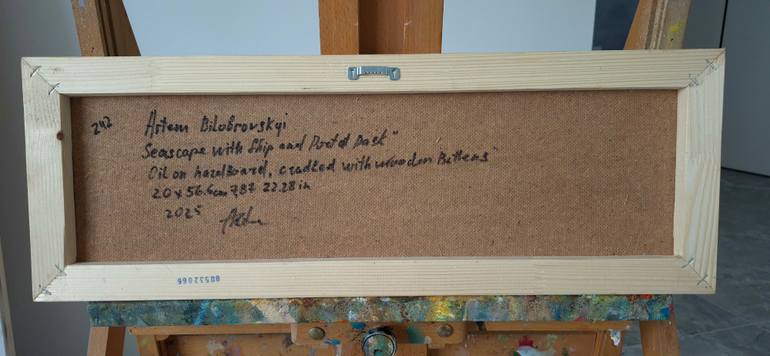 242
Artem Bilobrovskyi
Seascape with Ship and Dock"
Oil on hardboard, cradled with wooden Battens"
20x56.6cm 7,87 22.28in
2025
00532066